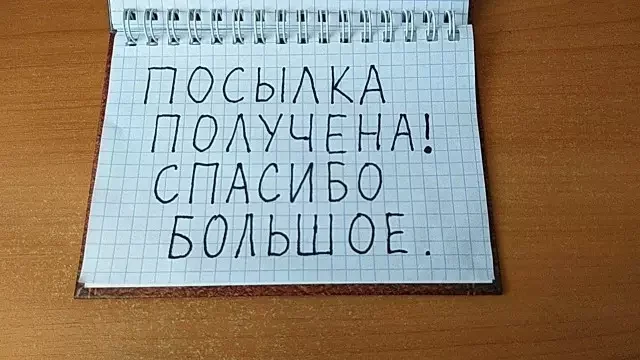 ПОСЫЛКА
ПОЛУЧЕНА!
СПАСИБО
БОЛЬШОЕ.